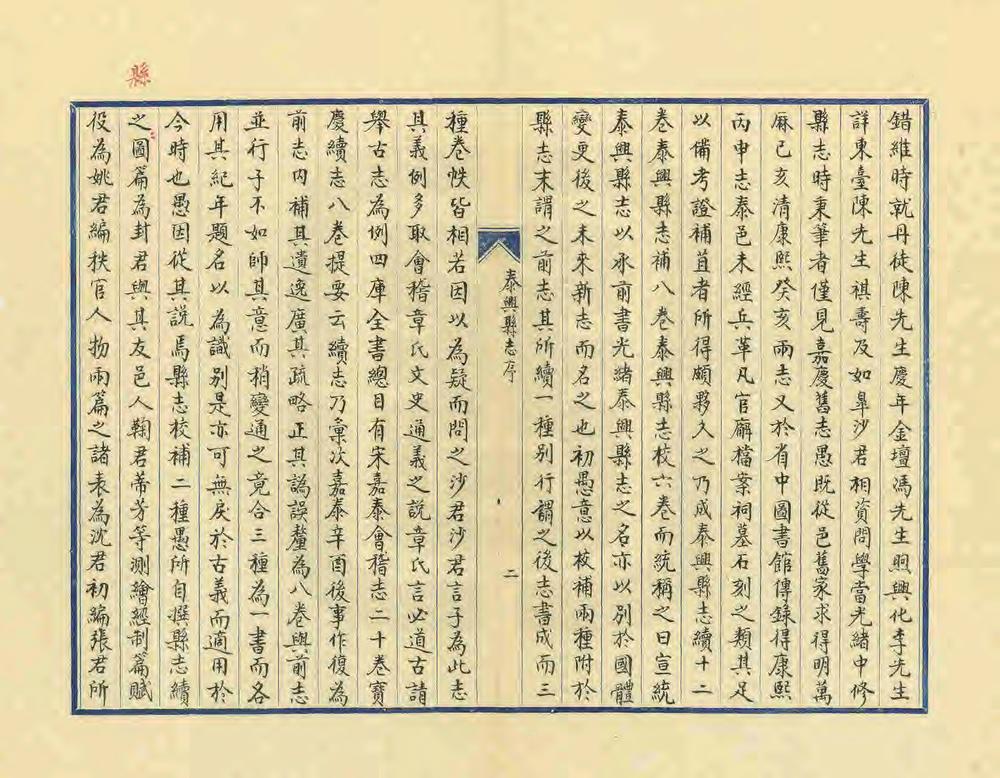 縣
錯維時就丹徒陳先生慶年金壇馮先生煦興化李先生
詳東臺陳先生祺壽及如臯沙君相資問學當光緒中修
縣志時秉筆者僅見嘉慶舊志愚既從邑舊家求得明萬
厤己亥清康熙癸亥兩志又於有中國書館傳錄得康熙
丙申志泰邑未經兵革凡官廨檔案祠墓石刻之類其足
以備考證補苴者所得頗夥久之乃成泰興縣志續十二
卷泰興縣志補八卷泰興縣志校六卷而統稱之曰宣統
泰興縣志以承前書光緒泰興縣志之名亦以別於國體
變更後之未來新志而名之也初愚意以校補兩種附於
縣志末謂之前志其所續一種別行謂之後志書成而三
泰興縣志序
二
種卷帙皆相若因以為疑而問之沙君沙君言子為此志
其義例多取會稽章氏文史通義之說章氏言必道古請
舉古志為例四庫全書總目有宋嘉泰會稽志二十卷寶
慶續志八卷提要云續志乃彙次嘉泰辛酉後事作復為
前志內補其遺逸廣其疏略正其譌誤釐為八卷與前志
並行子不如師其意而稍變通之竟合三種為一書而各
用其紀年題名以為識别是亦可無戾於古義而適用於
今時也愚因從其說焉縣志校補二種愚所自撰縣志續
之圖篇為封君與其友邑人鞠君蒂芳等測繪經制篇賦
役為姚君編秩官人物兩篇之諸表為沈君初編張君所